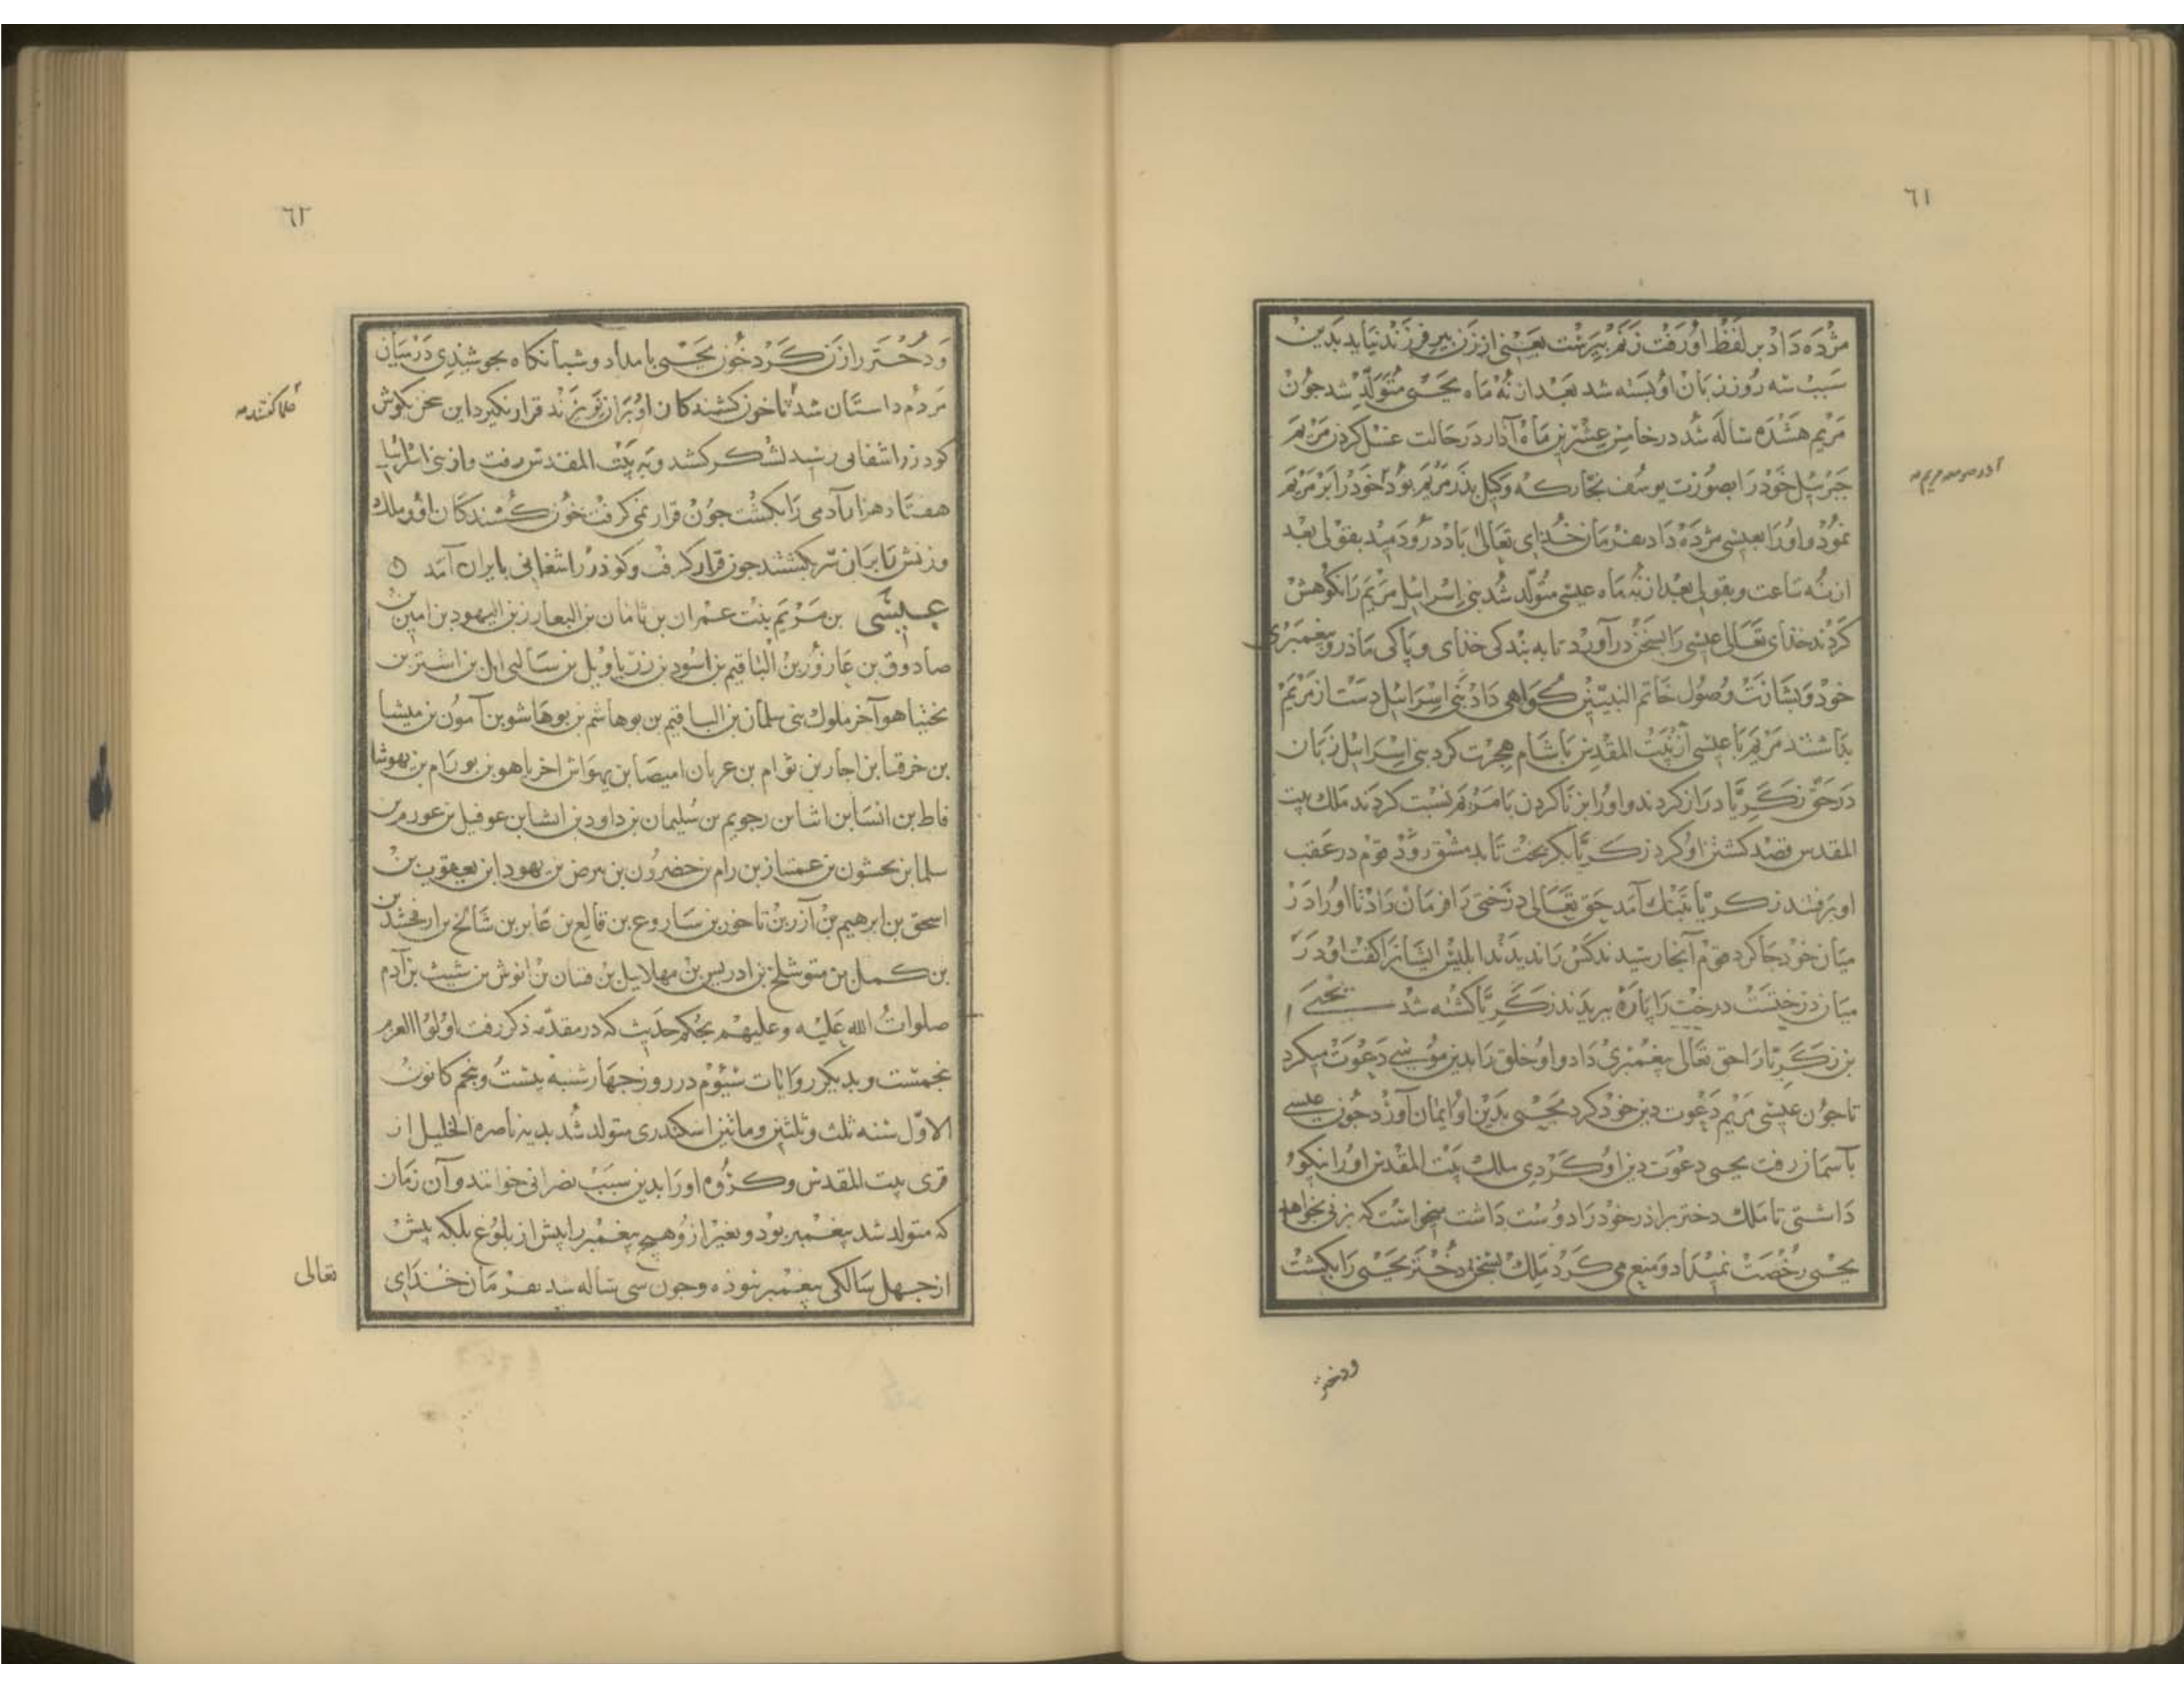 ٦١
مژده داد بر لفظ او رفت زنم پیرست یعنی از زن پیر فرزند نیاید بدین
سبب سه روز زبان او بسته شد بعد از نه ماه یحیی متولد شد جون
مریم هشده ساله شد در خامس عشرین ماه آذار در حالت غسل کردن مریم
جبرئیل خود را بصورت یوسف نجار که وکیل پدر مریم بود خود را بر مریم
ادر صومعه مریم صـ
نمود و او را بعیسی مژده داد بفرمان خدای تعالی باد درو دمید بقولی بعد
از نه ساعت و بقولی بعد از نه ماه عیسی متولد شد بنی اسرائیل مریم را نکوهش
کردند خذای تعالی عیسی را بسخن درآورد تا به بندکی خذای و پاکی ماذر و پیغمبری
خود و بشارت وصول خاتم النبیین کواهی داد بنی اسرائیل دست از مریم
بداشتند مریم با عیسی از بیت المقدس باشام هجرت کرد بنی اسرائیل زبان
در حق زکریا دراز کردند و او را بزنا کردن با مریم نسبت کردند ملک بیت
المقدس قصد کشتن او کرد زکریا بکریخت تا بدمشق روذ قوم در عقب
او برفتند زکریا بتنک آمد حق تعالی درختی را فرمان داد تا او را در
میان خود جا کرد قوم آنجا رسیدند کس را ندیدند ابلیس ایشانرا کفت او در
میان درختست درخت را پاره ببریدند زکریا کشته شد یحیی
بن زکریا را حق تعالی پیغمبری داد و او خلق را بدین موسی دعوت میکرد
تا جون عیسی مریم دعوت دین خود کرد یحیی بدین او ایمان آورد جون عیسی
بآسمان رفت یحیی دعوت دین او کردی ملک بیت المقدس او را نیکو
داشتی تا ملک دختر براذر خود را دوست داشت میخواست که بزنی بخواهد
یحیی رخصت نمیداد و منع می کرد ملک بسخن دختر یحیی را بکشت
ودختر
٦٢
و دختر را زن کرد خون یحیی بامداد و شبانکاه بجوشیدی در میان
مردم داستان شد تا خون کشندکان او بران نریزند قرار نکیرد این سخن بکوش
علما کفتند صـ
کودرز اشغانی رسید لشکر کشید و به بیت المقدس رفت و از بنی اسرائیل
هفتاد هزار آدمی را بکشت جون قرار نمی کرفت خون کشندکان او و ملک
و زنش تا بران سر بکشتند جون قرار کرفت و کوذرز اشغانی بایران آمد
عیسی بن مریم بنت عمران بن ماثان بن العازر بن الیهود بن امین بن
صادوق بن عازور بن الیاقیم بن اسود بن زرباویل بن سالتی ایل بن اشتر بن
یخنیاهو آخر ملوک بنی سلمان بن الیاقیم بن یوهاشم بن یوهاشو بن آمون بن میشا
بن خرقیا بن اجار بن ثوام بن عریان امیصا بن یهواش اخریاهو بن یورام بن یهوشا
فاط بن انسا بن اشا بن رجویم بن سلیمان بن داود بن ایشا بن عوفیل بن عور من
سلما بن یحشون بن عمیناز بن رام بن حضرون بن برص بن یهودا بن یعقوب بن
اسحق بن ابرهیم بن آزر بن ناخور بن ساروع بن قالع بن عابر بن شالخ بن ارفخشد بن
بن کمل بن متوشلخ بن ادریس بن مهلاییل بن قینان بن انوش بن شیث بن آدم
صلوات الله علیه و علیهم بحکم حدیث که در مقدمه ذکر رفت اولوا العزم
پنجمست و بدیکر روایات سیوم در روز جهار شنبه بیست و پنجم کانون
الاول سنه ثلث و ثلثین و ماتین اسکندری متولد شد بدیه ناصره الخلیل از
قری بیت المقدس و کروه او را بدین سبب نصرانی خوانند و آن زمان
که متولد شد پیغمبر بود و بغیر ازو هیچ پیغمبر را پیش از بلوغ بلکه پیش
از جهل سالکی پیغمبر نبوده و جون سی ساله شد بفرمان خدای
تعالی